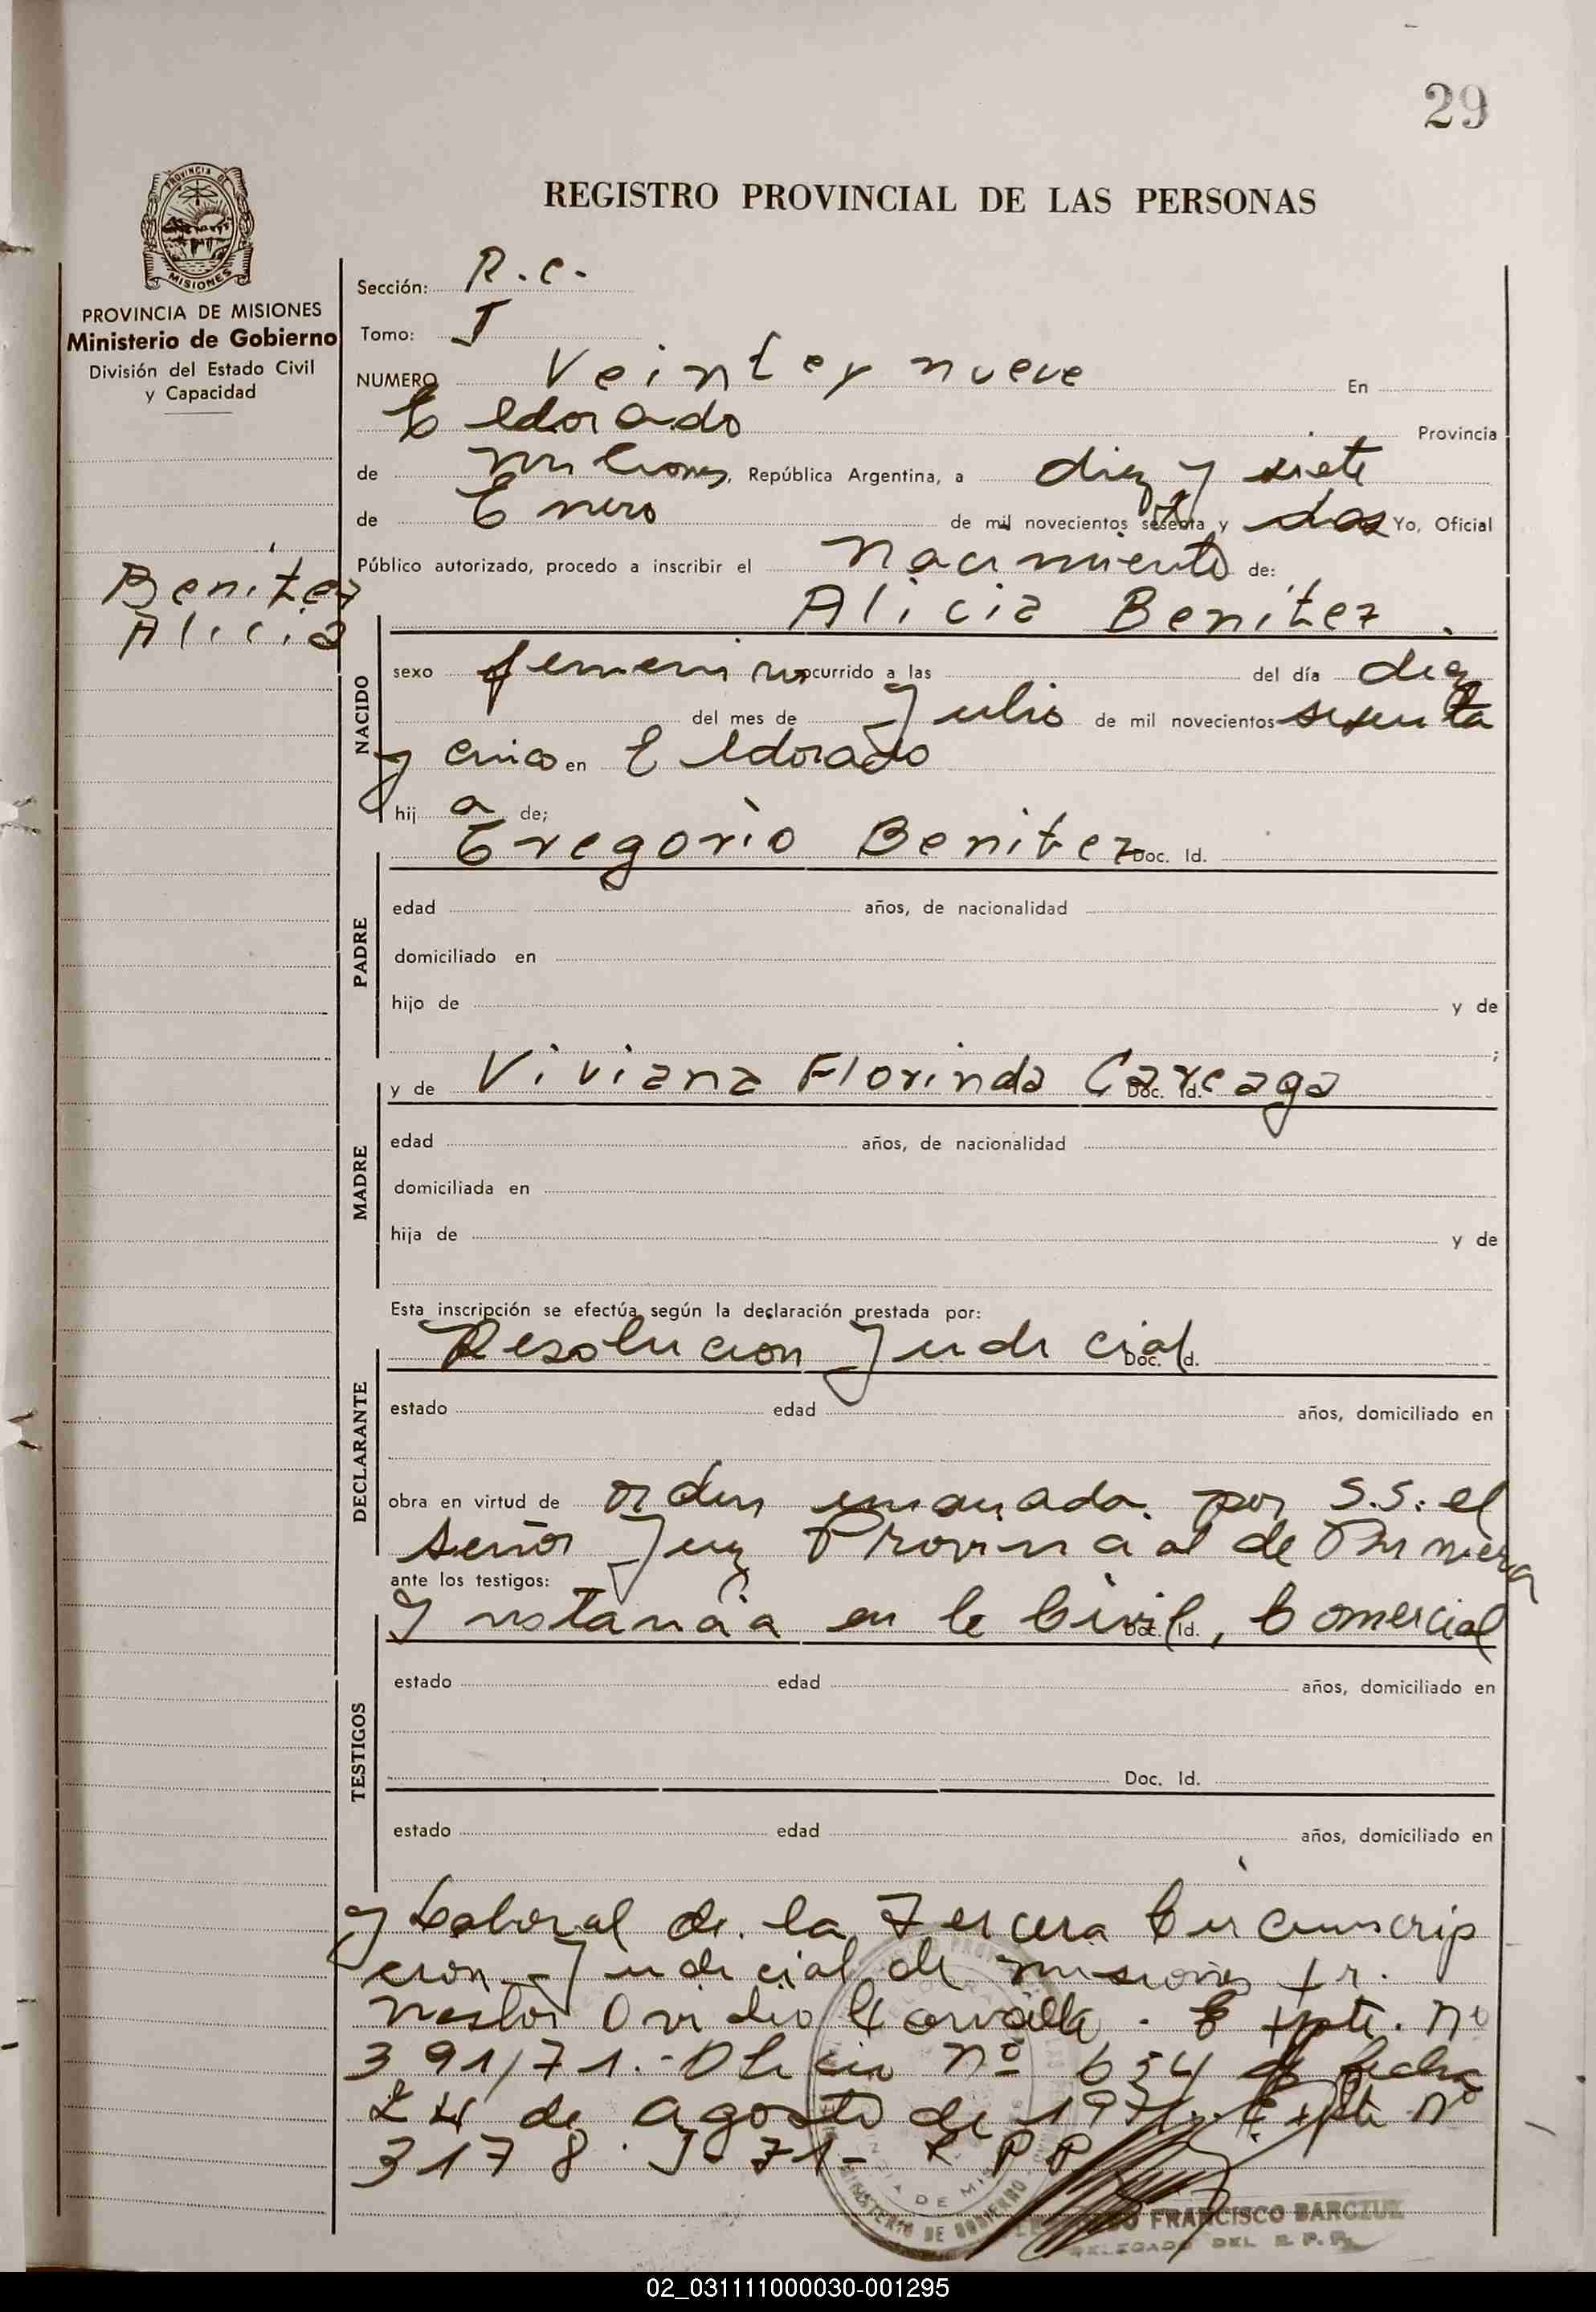 29
REGISTRO PROVINCIAL DE LAS PERSONAS
PROVINCIA DE MISIONES
Ministerio de Gobierno
División del Estado Civil
y Capacidad
Benitez
Alicia
Sección: R.C.
Tomo: I
NUMERO Veinte y nueve En
Eldorado Provincia
de Misiones, República Argentina, a diez y siete
de Enero de mil novecientos setenta y dos Yo, Oficial
Público autorizado, procedo a inscribir el Nacimiento de:
Alicia Benitez.
NACIDO
sexo femenino ocurrido a las del día diez
del mes de Julio de mil novecientos sesenta
y cinco en Eldorado
hij a de;
Gregorio Benitez Doc. Id.
PADRE
edad años, de nacionalidad
domiciliado en
hijo de y de
;
y de Viviana Florinda Careaga Doc. Id.
MADRE
edad años, de nacionalidad
domiciliada en
hija de y de
Esta inscripción se efectúa según la declaración prestada por:
Resolucion Judicial Doc. Id.
DECLARANTE
estado edad años, domiciliado en
obra en virtud de orden emanada por S.S. el
señor Juez Provincial de Primera
ante los testigos:
Instancia en lo Civil, Comercial Doc. Id.
TESTIGOS
estado edad años, domiciliado en
Doc. Id.
estado edad años, domiciliado en
y Laboral de la Tercera Circunscrip
cion Judicial de Misiones Dr.
Nestor Ovidio . Expte. Nº
391/71.- Oficio Nº 654 de fecha
24 de Agosto de 1971. Expte Nº
3178 J-71- R P P
MINISTERIO DE GOBIERNO
FRANCISCO BARCZUK
DELEGADO DEL R. P. P.
02_031111000030-001295